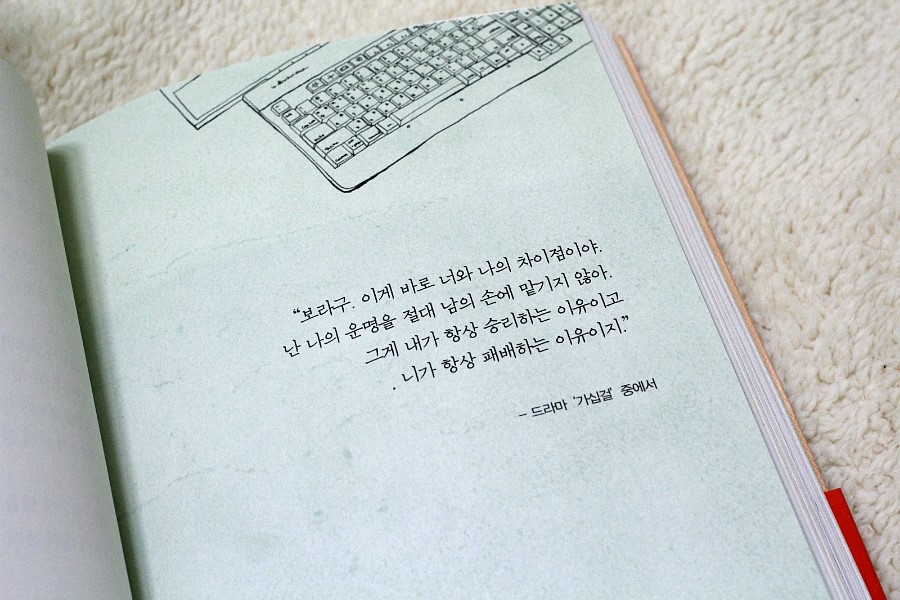 “보라구. 이게 바로 너와 나의 차이점이야.
난 나의 운명을 절대 남의 손에 맡기지 않아.
그게 내가 항상 승리하는 이유이고
니가 항상 패배하는 이유이지.”
– 드라마 ‘가십걸’ 중에서